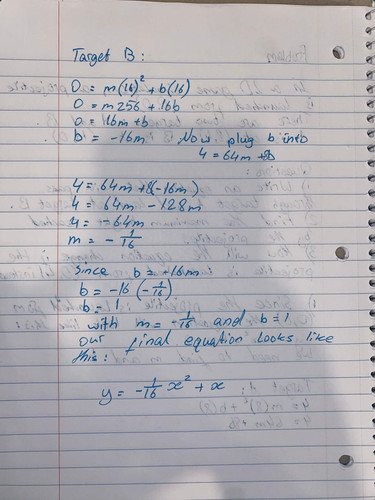 Target B:
0 = m(16)² + b(16)
0 = m256 + 16b
0 = 16m + b
b = -16m Now plug b into
4 = 64m + 8b
4 = 64m + 8(-16m)
4 = 64m - 128m
4 = -64m
m = -1/16
Since b = -16m
b = -16(-1/16)
b = 1
with m = -1/16 and b = 1
our final equation looks like
this:
y = -1/16 x² + x